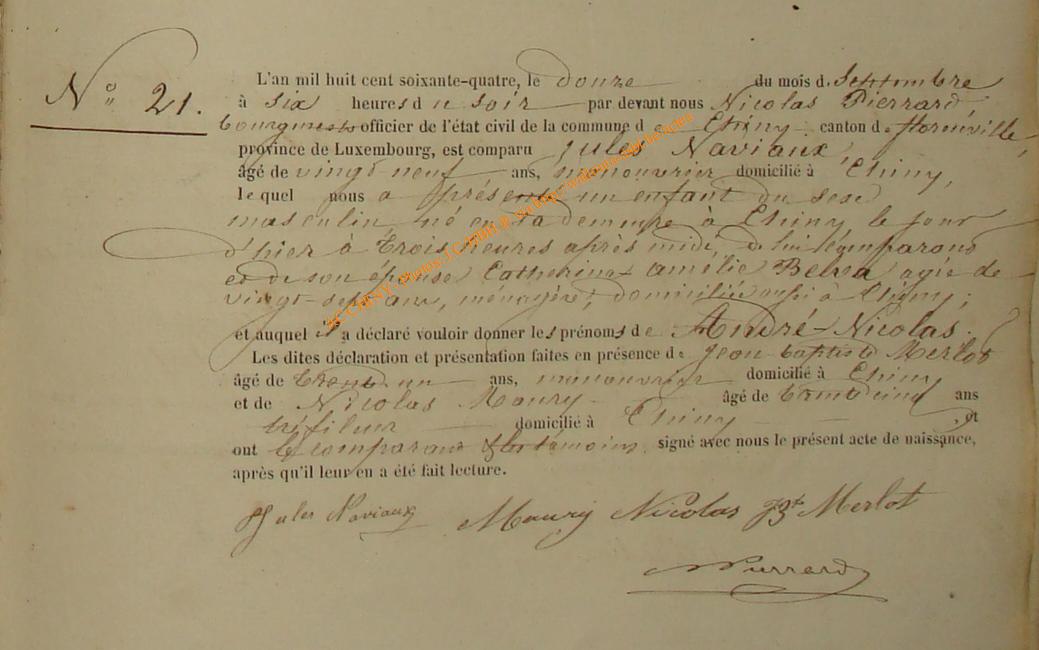 N° 21.
L'an mil huit cent soixante-quatre, le douze du mois de Septembre
à six heures du soir par devant nous Nicolas Pierrard
bourgmestre officier de l'état civil de la commune de Chiny canton de Florenville,
province de Luxembourg, est comparu Jules Naviaux,
âgé de vingt-neuf ans, manouvrier domicilié à Chiny,
le quel nous a présenté un enfant du sexe
masculin né en sa demeure à Chiny le jour
d'hier à trois heures après midi, de lui comparant
et de son épouse Catherine Amélie Belva agée de
vingt-sept ans, ménagère, domiciliée aussi à Chiny;
et auquel il a déclaré vouloir donner les prénoms de André-Nicolas.
Les dites déclaration et présentation faites en présence de Jean Baptiste Merlot
âgé de trente un ans, manouvrier domicilié à Chiny
et de Nicolas Maury âgé de trente cinq ans
tréfileur domicilié à Chiny et
ont le comparant & les témoins signé avec nous le présent acte de naissance,
après qu'il leur en a été fait lecture.
Jules Naviaux Maury Nicolas JBte Merlot
NPierrard